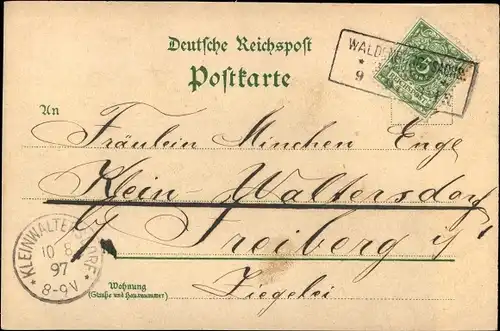 Deutsche Reichspost
Postkarte
WALDENBURG SACHS.
* 9
An
Fräulein Minchen Enge
Klein-Waltersdorf
b/ Freiberg i/
Ziegelei
KLEINWALTERSDORF
10 8
97
8-9V
Wohnung
(Straße und Hausnummer)